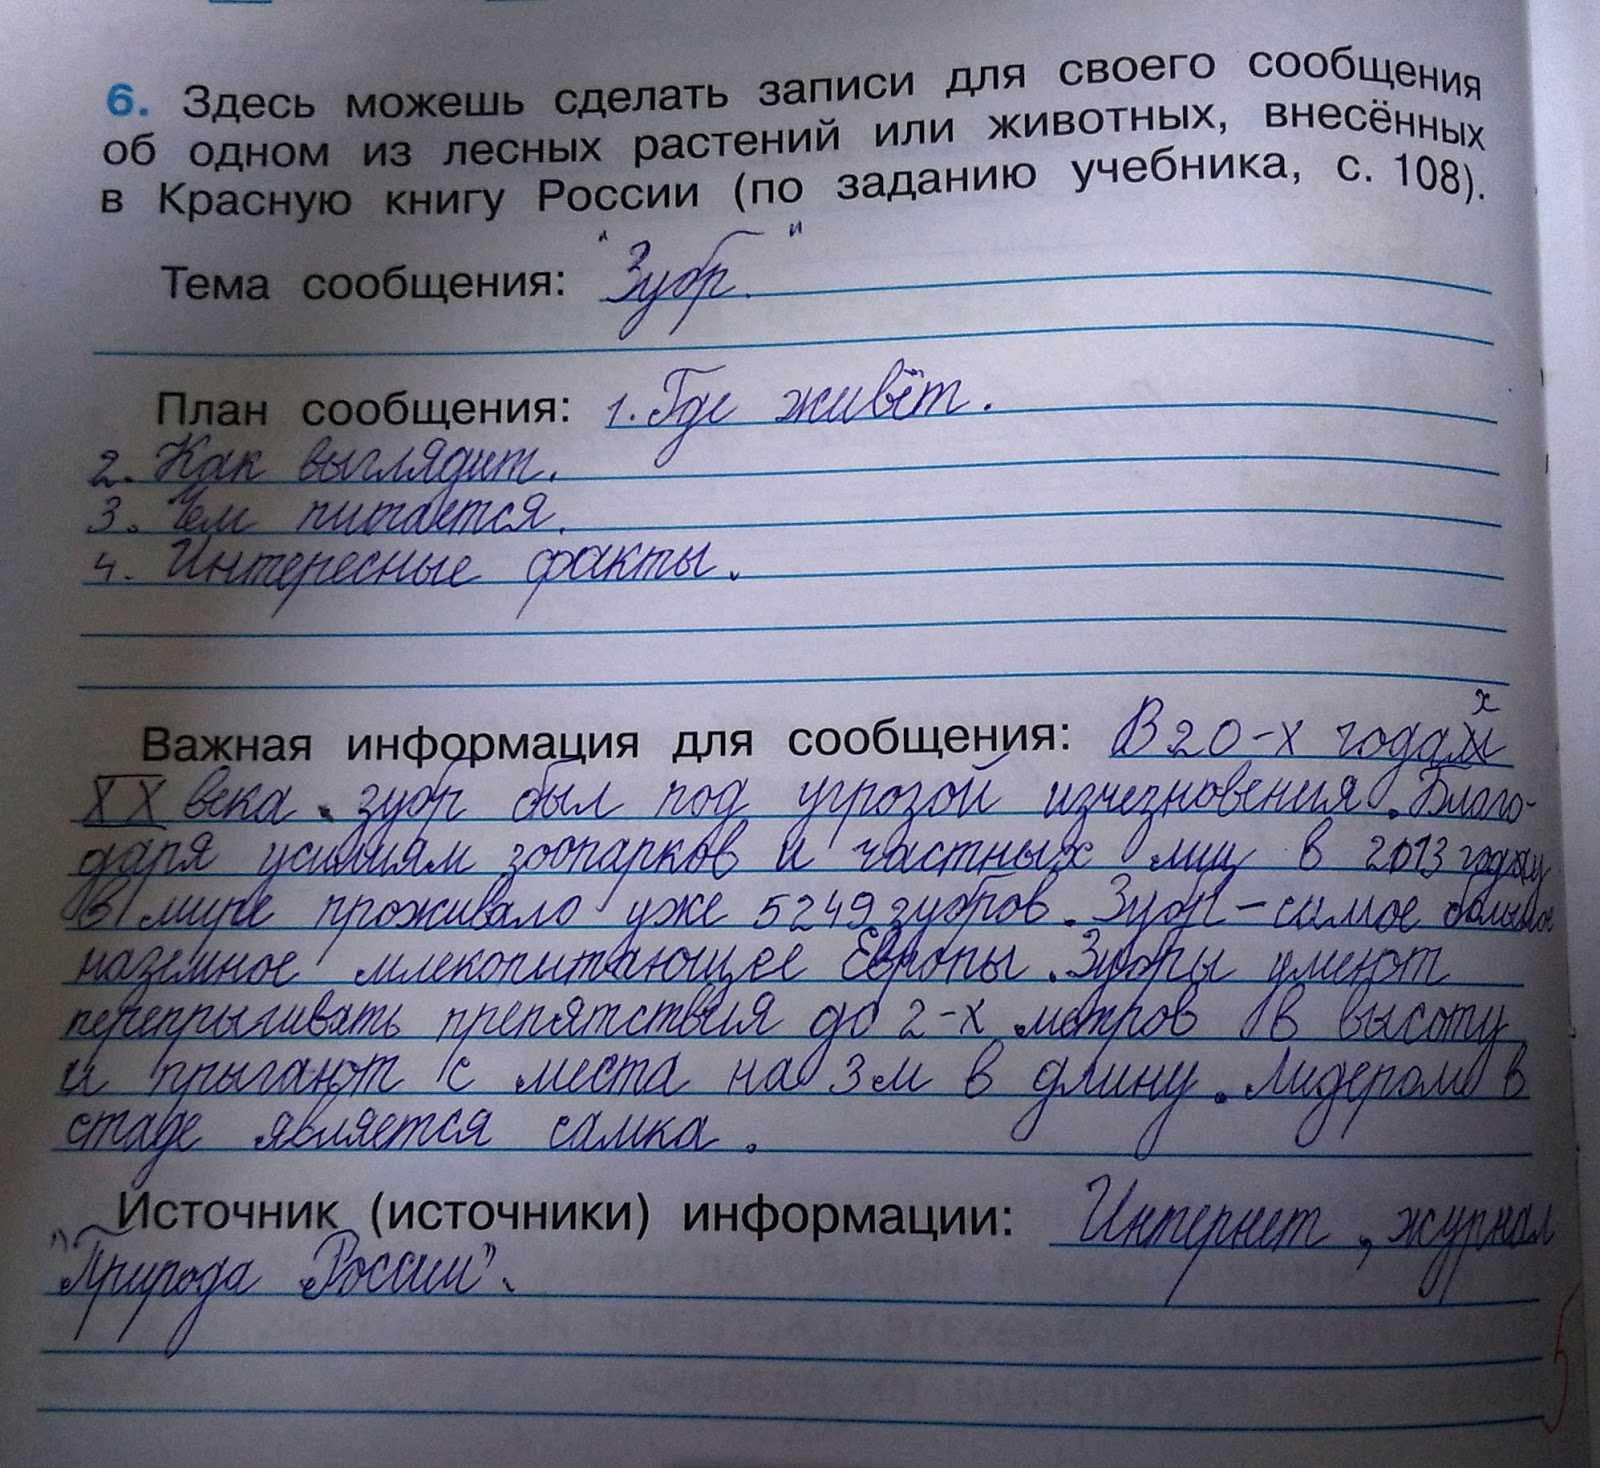 6. Здесь можешь сделать записи для своего сообщения
об одном из лесных растений или животных, внесённых
в Красную книгу России (по заданию учебника, с. 108).
Тема сообщения: "Зубр."
План сообщения: 1. Где живёт.
2. Как выглядит.
3. Чем питается.
4. Интересные факты.
Важная информация для сообщения: В 20-х годах
XX века зубр был под угрозой изчезновения. Благо-
даря усилиям зоопарков и частных лиц в 2013 году
в мире проживало уже 5249 зубров. Зубр – самое большое
наземное млекопитающее Европы. Зубры умеют
перепрыгивать препятствия до 2-х метров в высоту
и прыгают с места на 3м в длину. Лидером в
стаде является самка.
Источник (источники) информации: Интернет, журнал
"Природа России".
5